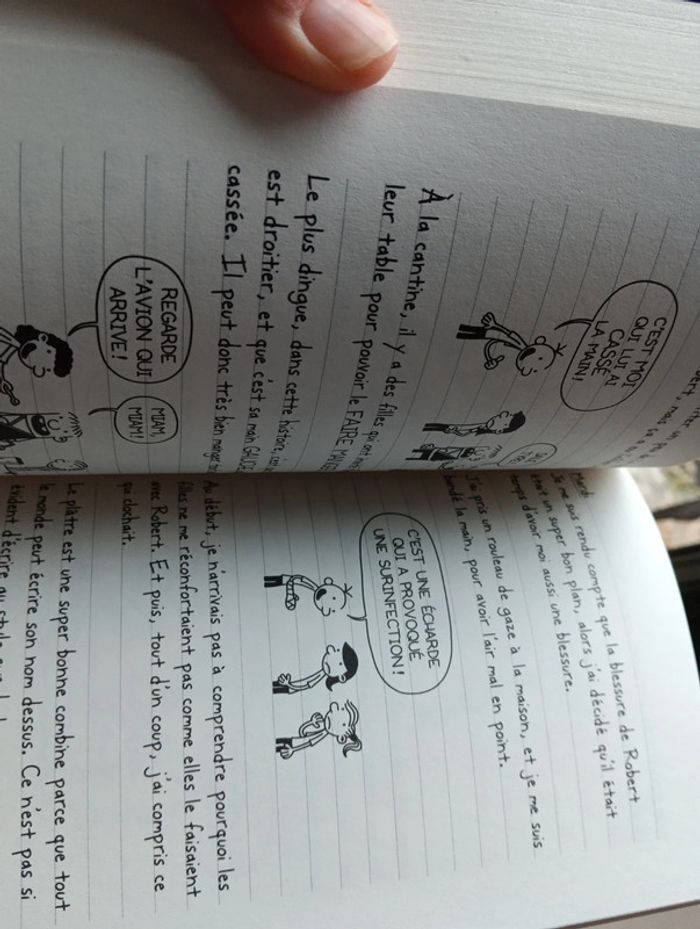 C'EST MOI
QUI LUI AI
CASSÉ
LA MAIN!
À la cantine, il y a des filles qui ont
leur table pour pouvoir le FAIRE
Le plus dingue, dans cette histoire,
est droitier, et que c'est sa main
cassée. Il peut donc très bien manger
REGARDE
L'AVION QUI
ARRIVE!
MIAM,
MIAM!
Mardi
Je me suis rendu compte que la blessure de Robert
était un super bon plan, alors j'ai décidé qu'il était
temps d'avoir moi aussi une blessure.
J'ai pris un rouleau de gaze à la maison, et je me suis
bandé la main, pour avoir l'air mal en point.
C'EST UNE ÉCHARDE
QUI A PROVOQUÉ
UNE SURINFECTION!
Au début, je n'arrivais pas à comprendre pourquoi les
filles ne me réconfortaient pas comme elles le faisaient
avec Robert. Et puis, tout d'un coup, j'ai compris ce
qui clochait.
Le plâtre est une super bonne combine parce que tout
le monde peut écrire son nom dessus. Ce n'est pas si
évident d'écrire au stylo